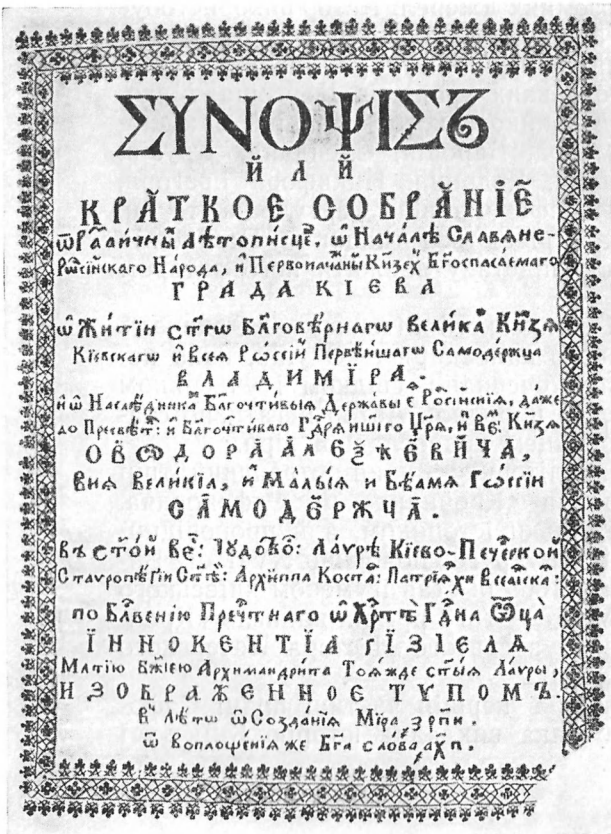 ΣΥΝΟΨΙΣЪ
И҆ЛИ
КРА́ТКОЕ СОБРА́НІЕ
Ѿ РАꙀЛИЧНЫ Лѣтопи́сцє, ѡ҆ Нача́лѣ Славѧне-
Рѡссі́йскаго Наро́да, и҆ Первонача́лны Кн҃зе Бг҃оспасаемаго
ГРАДА КІЕВА
ѡ҆ Житїи ст҃гѡ Бл҃говѣ́рнагѡ вели́ка Кн҃зѧ
Кіевскагѡ и҆ Всеѧ Рѡссїи Первѣ́йшагѡ Самоде́ржца
ВЛАДИМІРА,
и҆ ѡ҆ Наслѣ́дника Бл҃гочти́выѧ Держа́вы е҆гѡ Рѡссі́йскіѧ, даже
до Пресвѣ: и҆ Бл҃гочти́ваго Гдⷭ҇рѧ на́шегѡ Цр҃ѧ, и҆ Ве: Кн҃зѧ
ѲЕѠДОРА АЛЕѮѢЕВИЧА,
Всеѧ Вели́кіѧ, и҆ Ма́лыѧ и Бѣ́лыѧ Рѡссїи
САМОДЕРЖЦА
въ ст҃о́й Ве: Чудово: Ла́урѣ Кіево-Пече́рской
Ставропѣ́гїи Ст҃ѣ: Архїппа Конста: Патрїа́рхи Вселенска:
по Блⷭ҇ве́нїю Преч҇тнаго ѡ҆ Хрⷭ҇тѣ Гдⷭ҇на Ѿца̀
ІННОКЕНТІА ГІЗІЕЛѦ
Млⷭ҇тїю Бж҃їею Архимандри́та Тоѧ́жде ст҃ыѧ Ла́уры,
ИЗОБРАЖЕННОЕ ТУПОМЪ.
в Лѣ́то ѿ Созда́нїѧ Мі́ра ҂зрпи.
ѿ Воплоще́нїѧ же Бг҃а сло́ва ҂ахп.